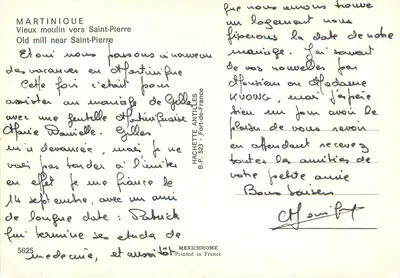 MARTINIQUE
Vieux moulin vers Saint-Pierre
Old mill near Saint-Pierre
Et oui nous passons à nouveau
des vacances en Martinique
Cette fois c'était pour
assister au mariage de Gilles
avec une gentille Martiniquaise
Marie Danielle. Gilles
m'a devancée, mais je ne
vais pas tarder à l'imiter
en effet je me fiance le
14 septembre, avec un ami
de longue date : Patrick
qui termine ses études de
médecine, et aussitôt
5625
MEXICHROME
Printed in France
HACHETTE ANTILLES
B.P. 523 - Fort-de-France
que nous aurons trouvé
un logement nous
fixerons la date de notre
mariage. J'ai souvent
de vos nouvelles par
Monsieur ou Madame
KUONG, mais j'espère
bien un jour avoir le
plaisir de vous revoir
en attendant recevez
toutes les amitiés de
votre petite année
Bons baisers